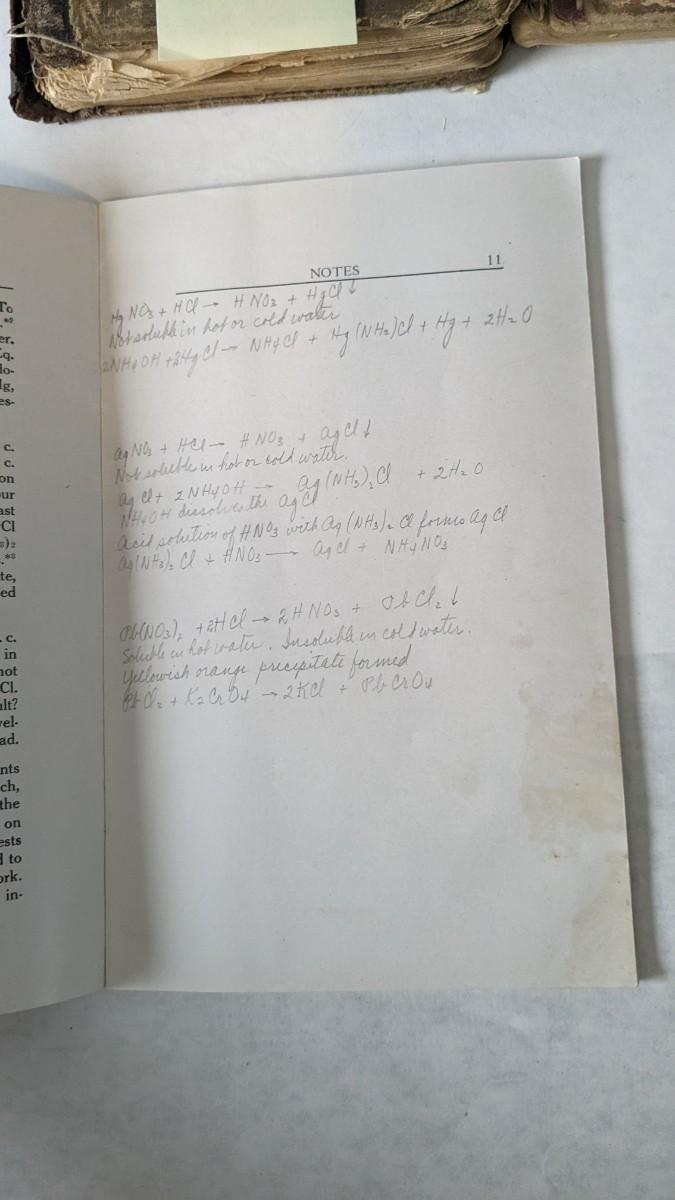 To
.*²
er.
Eq.
lo-
lg,
es-
c.
c.
on
our
ast
Cl
₃)₂
.*³
te,
ed
. c.
in
not
Cl.
ult?
vel-
ad.
nts
ch,
the
on
ests
d to
ork.
in-
NOTES 11
Hg NO₃ + HCl → H NO₃ + HgCl ↓
Not soluble in hot or cold water
2NH₄OH + 2HgCl → NH₄Cl + Hg(NH₂)Cl + Hg + 2H₂O
Ag NO₃ + HCl → H NO₃ + AgCl ↓
Not soluble in hot or cold water.
Ag Cl + 2NH₄OH → Ag(NH₃)₂Cl + 2H₂O
NH₄OH dissolves the AgCl
Acid solution of HNO₃ with Ag(NH₃)₂Cl forms AgCl
Ag(NH₃)₂Cl + HNO₃ → AgCl + NH₄NO₃
Pb(NO₃)₂ + 2HCl → 2HNO₃ + PbCl₂ ↓
Soluble in hot water. Insoluble in cold water.
Yellowish orange precipitate formed
PbCl₂ + K₂CrO₄ → 2KCl + PbCrO₄